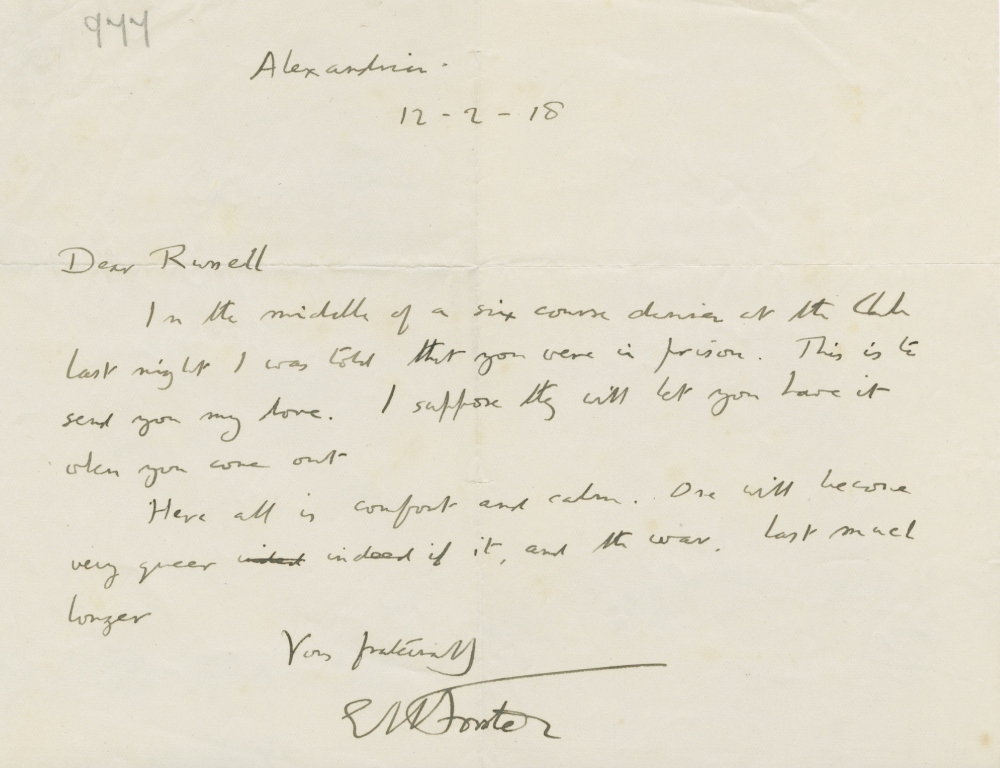 977
Alexandria.
12 - 2 - 18
Dear Russell
In the middle of a six course dinner at the Club
last night I was told that you were in prison. This is to
send you my love. I suppose they will let you have it
when you come out
Here all is comfort and calm. One will become
very queer indeed indeed if it, and the war, last much
longer
Yours fraternally
EMForster